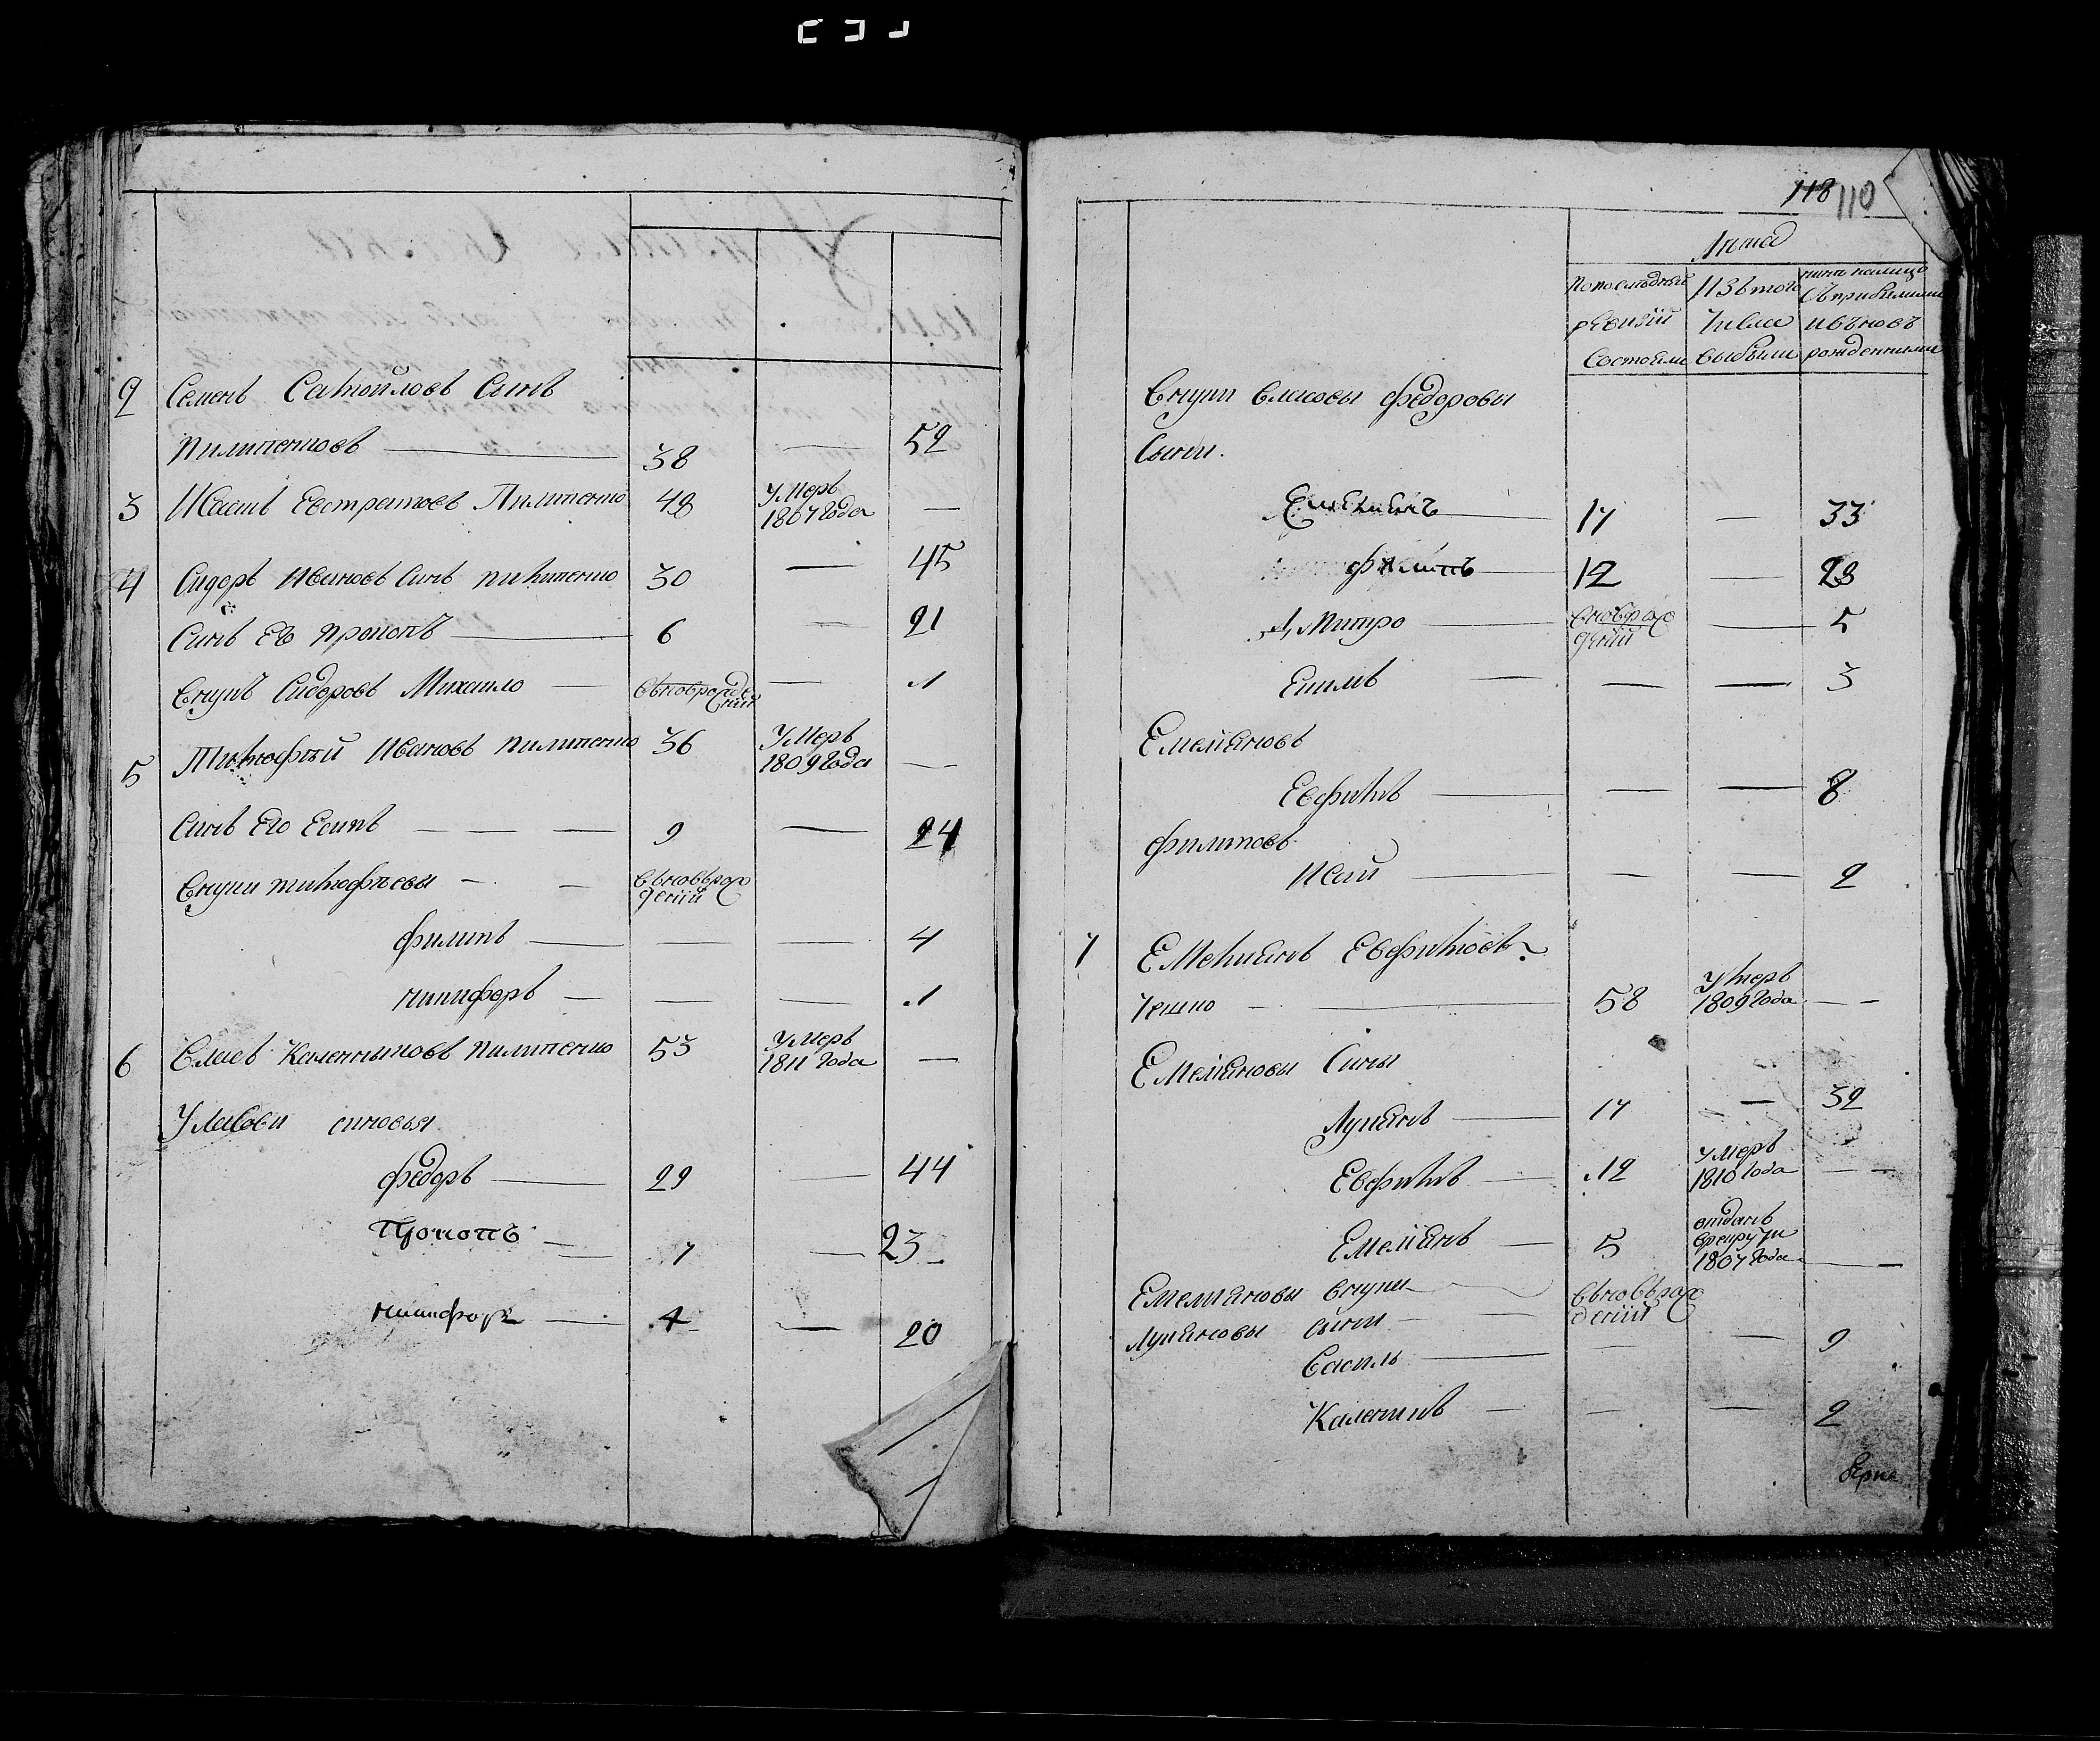 2 Семенъ Самойловъ Сынъ
Пилипенковъ 38 — 52
3 Иванъ Евстратовъ Пилипенко 48 Умеръ
1807 Года —
4 Сидоръ Ивановъ Синъ пилипенко 30 — 45
Синъ Его Прокопъ 6 — 21
Внукъ Сидоровъ Михаило — вьновражде
ний — 1
5 Тимофѣй Ивановъ пилипенко 36 Умеръ
1809 Года —
Синъ Его Есипъ — — — 9 — 24
Внуки тимофѣевы — — вьновьрож
дений
филипъ — — — 4
никифоръ — — — 1
6 Власъ Каленниковъ пилипенко 53 Умеръ
1811 Года —
Уласови синовья
федоръ — 29 — 44
Прокопъ — 7 — 23
никифоръ — 4 — 20
118 110
Лѣта
По последней Изътого нынѣ налицо
ревизіи Числа Съприбилими
Состояли выбыли ивъновъ
рожденними
Внуки власовы федоровы
Сыни.
Емельянъ — 17 — 33
филипъ — 12 — 28
Дмитро — вновьрож
дений — 5
Екимъ — — — 3
Емеліяновъ
Евфимъ — — — 8
филиповъ
Исай — — — 2
7 Емельянъ Евфимовъ
58 Умеръ
1809 Года — —
Емеліяновы Сины
Лукьянъ — 17 — 32
Евфимъ — 12 Умеръ
1810 Года — —
Емеліянъ — 5 отданъ
врекруты
1807 Года —
Емеліяновы внуки вьновьрож
дений
Лукьяновы сыни
Василь — — — 9
Каленикъ — — — 2
верно